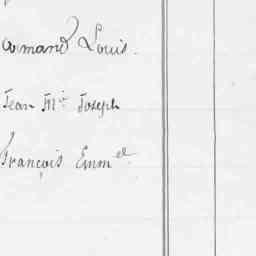 Armand Louis.
Jean M.ie Joseph
François Emm.el